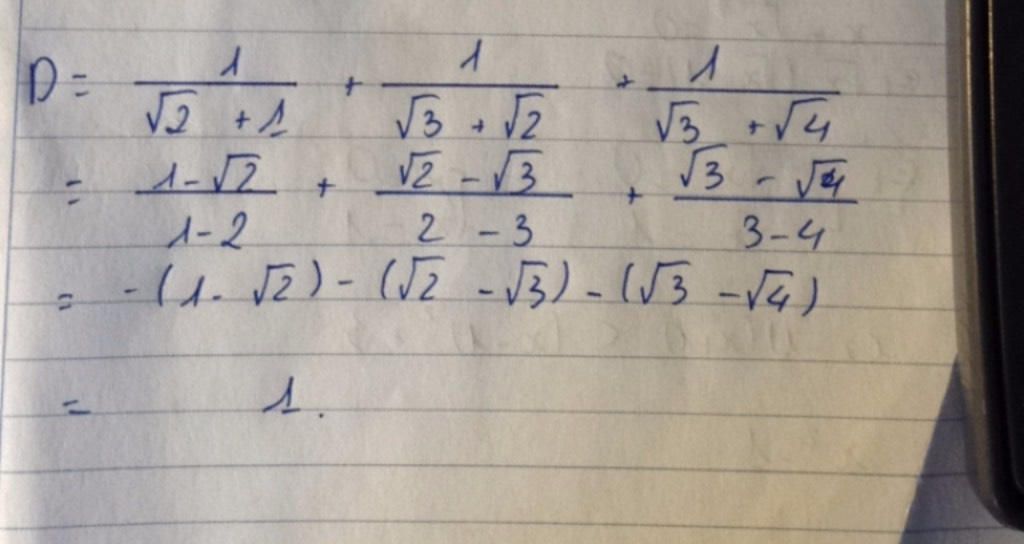 D = 1/(√2 + 1) + 1/(√3 + √2) + 1/(√3 + √4)
= (1 - √2)/(1 - 2) + (√2 - √3)/(2 - 3) + (√3 - √4)/(3 - 4)
= -(1 - √2) - (√2 - √3) - (√3 - √4)
= 1.